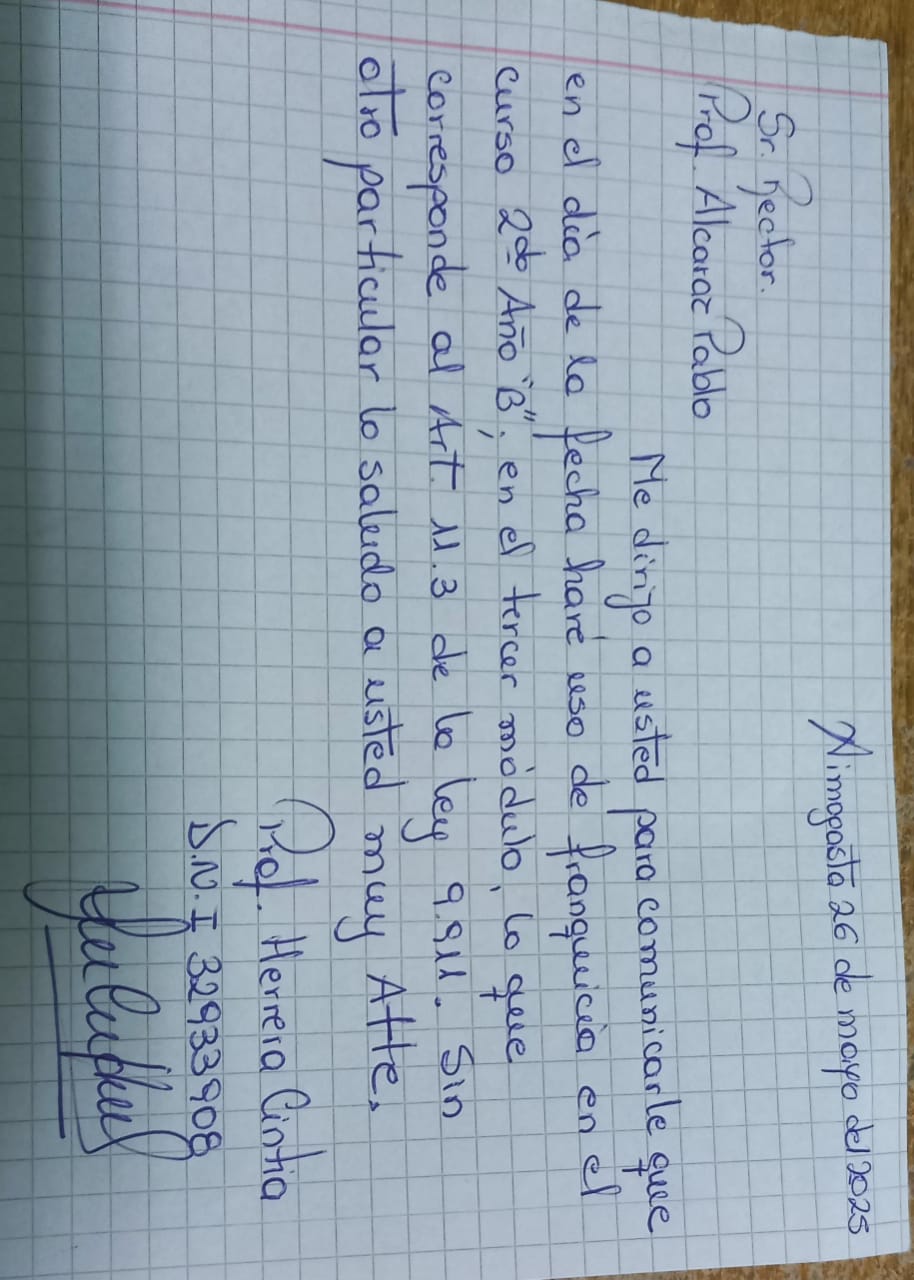 Aimogasta 26 de mayo del 2025
Sr. Rector.
Prof. Alcaraz Pablo
Me dirijo a usted para comunicarle que
en el día de la fecha haré uso de franquicia en el
curso 2do Año "B", en el tercer módulo, lo que
corresponde al Art. 11.3 de la ley 9.911. Sin
otro particular lo saludo a usted muy Atte.
Prof. Herrera Cintia
D.N.I 32933908